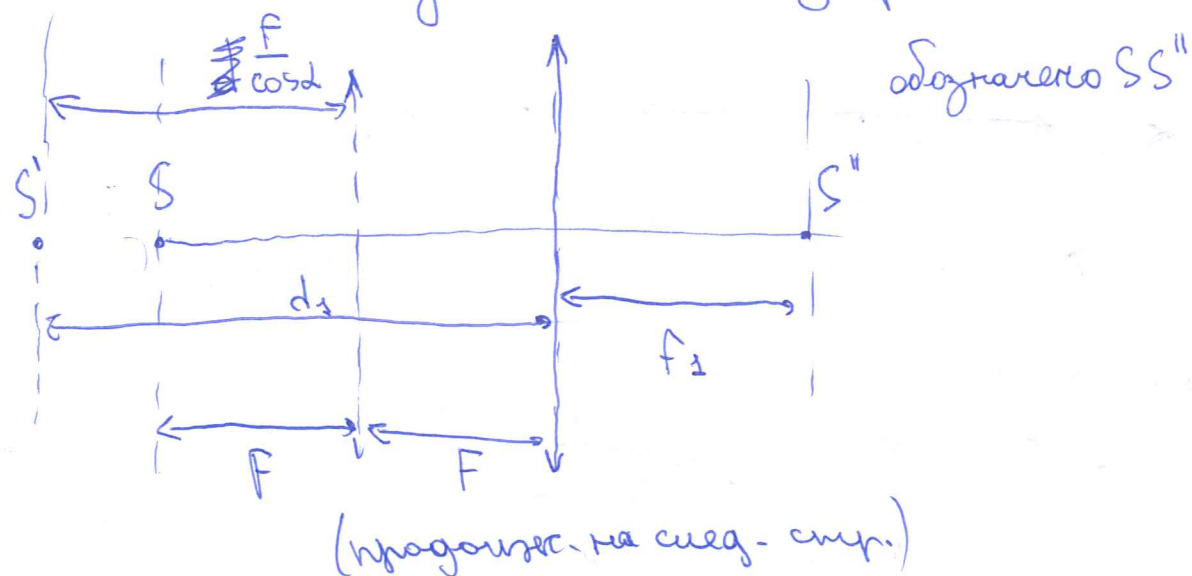 F
cosα
обозначено SS"
S' S S"
d₁
f₁
F F
(продолж. на след. стр.)